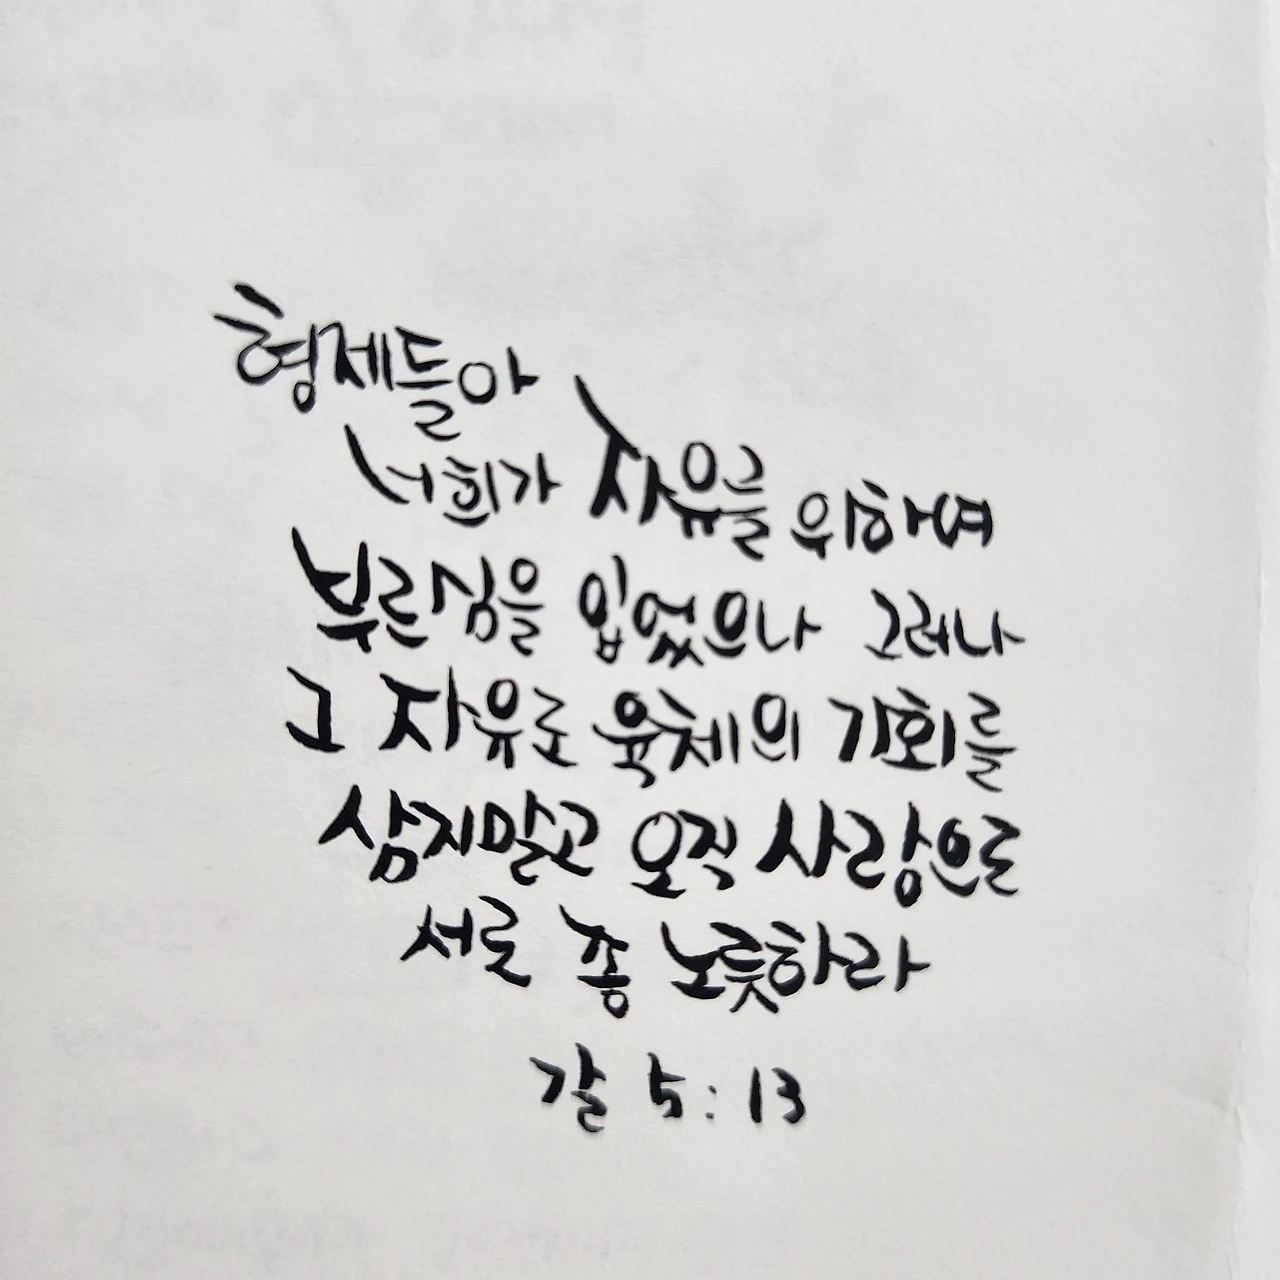 형제들아
너희가 자유를 위하여
부르심을 입었으나 그러나
그 자유로 육체의 기회를
삼지말고 오직 사랑으로
서로 종 노릇하라
갈 5:13